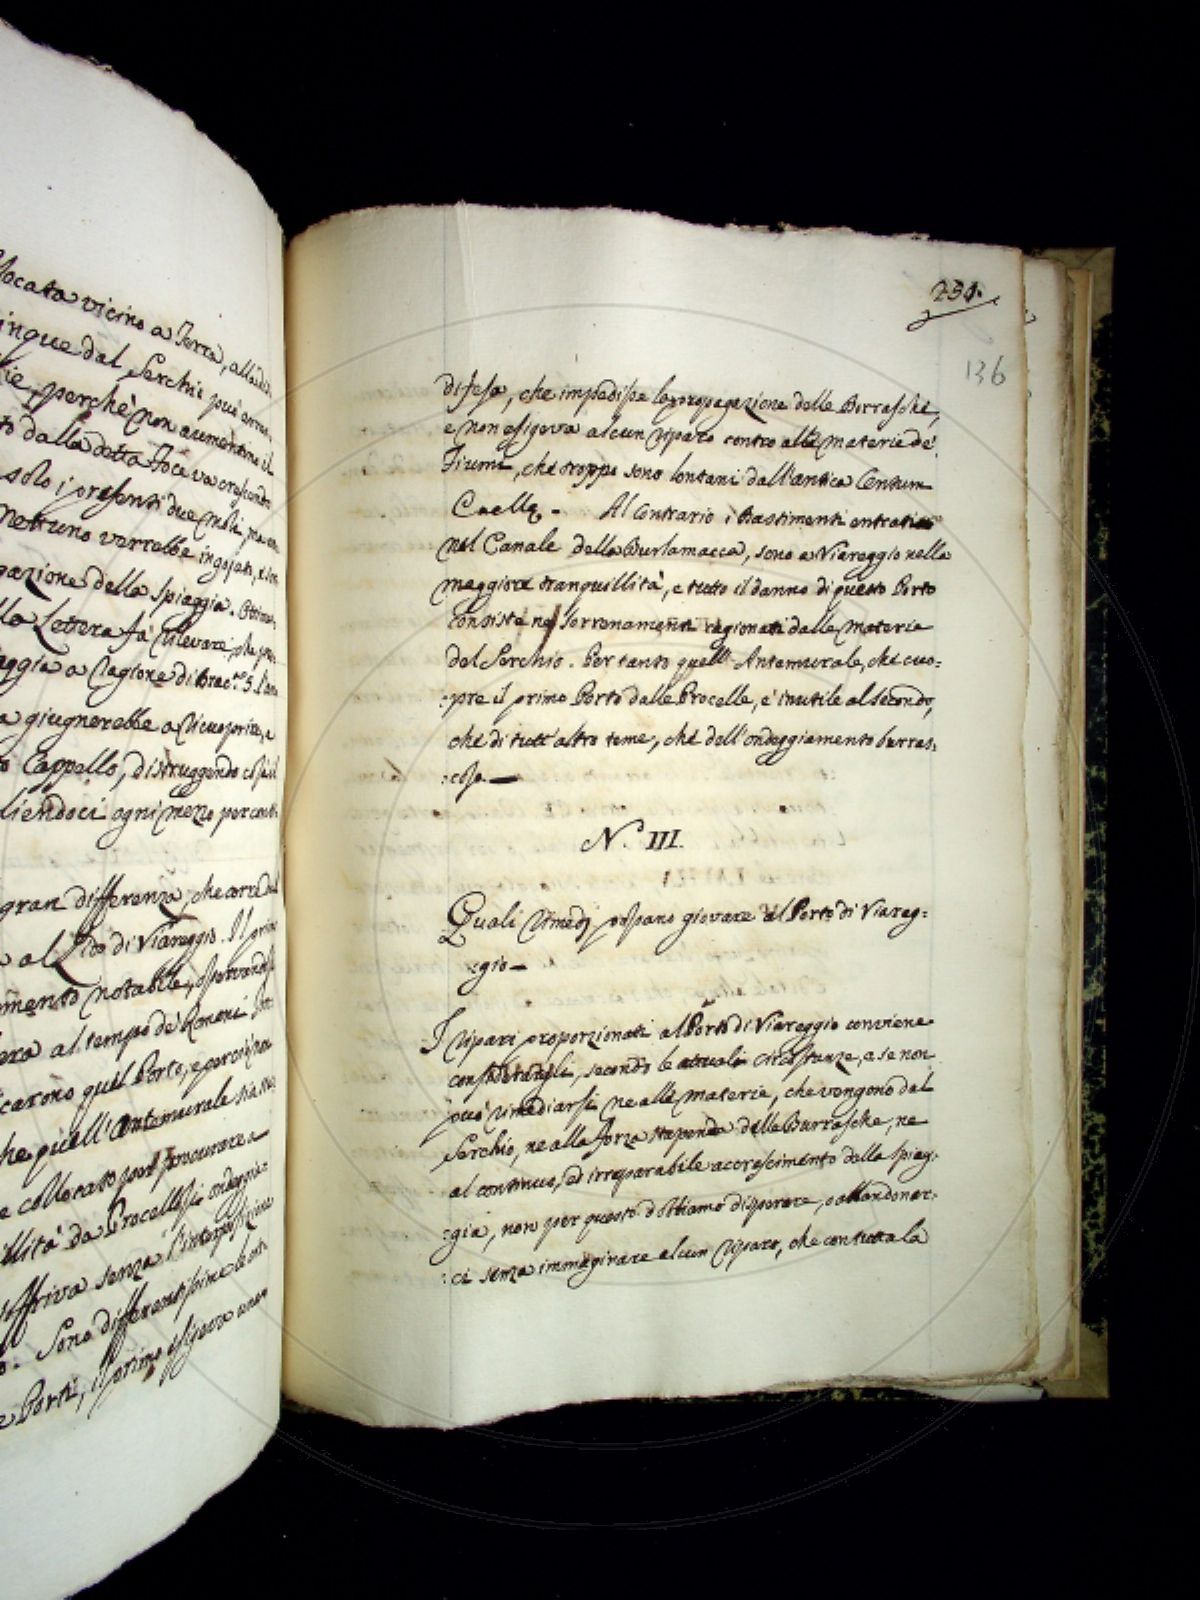 focata vicino a Terra, alla di
inque dal Serchio può
perchè non aumentino il
to dalla detta Foce va crescendo
solo i presenti due moli, ma
Nettuno verrebbe ingojato, e
gazione della Spiaggia.
Lettera fà rilevare, che
aggia a Cagione di Brac. 5. l'
a giugnerebbe a ricuoprire, e
Cappello, distruggendo così il
liendoci ogni mezzo per
gran differenza, che corre dal
al Lito di Viareggio. Il primo
mento notabile, osservandosi
era al tempo de' Romani
carono quel Porto, e perciò
he quell'Antemurale sia
e collocato per procurare a
illità da Procellosi ondeggia
ffriva senza l'interposizione
o. Sono differentissime le
e Porti, il primo esigeva una
231.
136
difesa, che impedisse la propagazione delle Borrasche,
e non esigeva alcun riparo contro alle materie de'
Fiumi, che troppo sono lontani dall'antica Centum
Caelle. Al Contrario i Bastimenti entrati
nel Canale della Burlamacca, sono a Viareggio nella
maggiore tranquillità, e tutto il danno di questo Porto
consiste ne' Serrenamenti cagionati dalle materie
del Serchio. Per tanto quell'Antemurale, che cuo=
=pre il primo Porto dalle Procelle, è inutile al secondo,
che di tutt'altro teme, che dell'ondeggiamento burras=
=coso.
N.° III.
Quali Rimedj possano giovare al Porto di Viareg=
=gio
I ripari proporzionati al Porto di Viareggio conviene
considerargli, secondo le attuali circostanze, e se non
può rimediarsi ne alle materie, che vengono dal
Serchio, ne alla forza stupenda delle Burrasche, ne
al continuo, ed irreparabile accrescimento della spiag=
=gia, non per questo dobbiamo disperare, o abbandonar=
=ci senza immaginare alcun riparo, che con tutta la